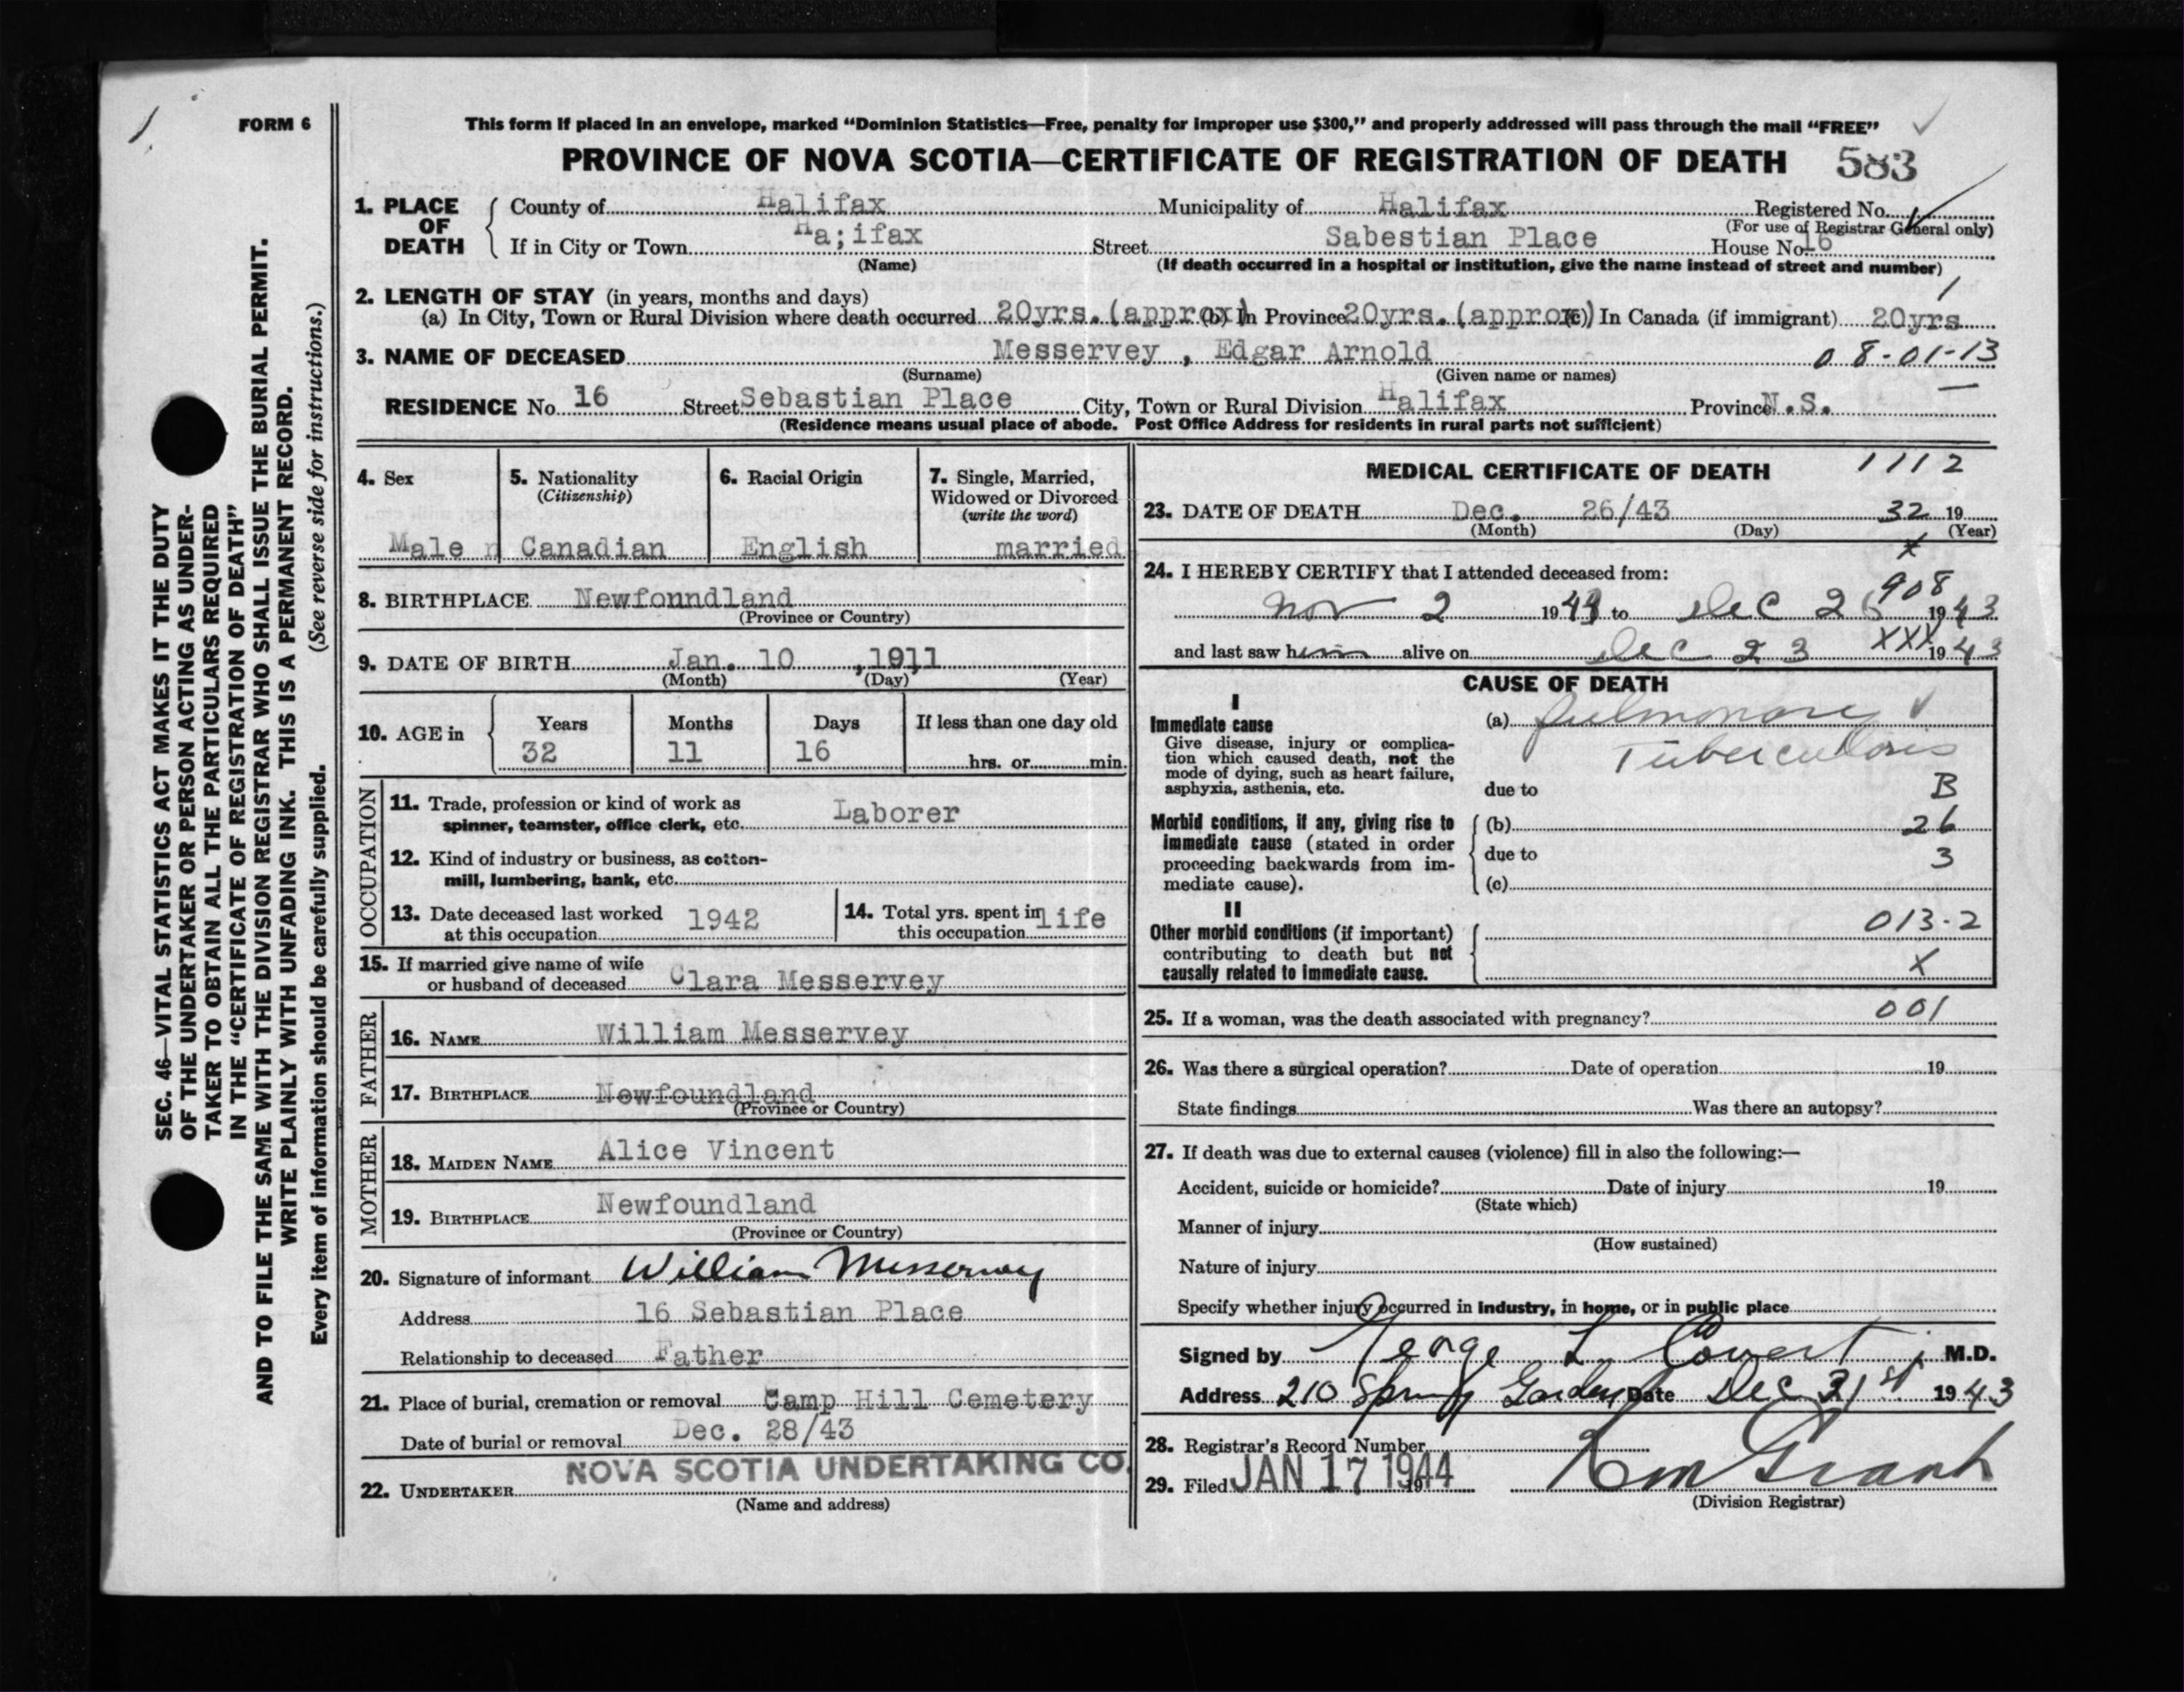 1
FORM 6
This form if placed in an envelope, marked “Dominion Statistics—Free, penalty for improper use $300,” and properly addressed will pass through the mail “FREE”
PROVINCE OF NOVA SCOTIA—CERTIFICATE OF REGISTRATION OF DEATH 583
1. PLACE OF DEATH
County of Halifax Municipality of Halifax Registered No.
(For use of Registrar General only)
If in City or Town Ha;ifax Street Sabestian Place House No 16
(Name) (If death occurred in a hospital or institution, give the name instead of street and number)
2. LENGTH OF STAY (in years, months and days) 1
(a) In City, Town or Rural Division where death occurred 20yrs.(approx) (b) In Province 20yrs.(approx) (c) In Canada (if immigrant) 20yrs
3. NAME OF DECEASED Messervey , Edgar Arnold 08-01-13
(Surname) (Given name or names)
RESIDENCE No. 16 Street Sebastian Place City, Town or Rural Division Halifax Province N.S.
(Residence means usual place of abode. Post Office Address for residents in rural parts not sufficient)
4. Sex
Male
5. Nationality
(Citizenship)
Canadian
6. Racial Origin
English
7. Single, Married,
Widowed or Divorced
(write the word)
married
8. BIRTHPLACE Newfonndland
(Province or Country)
9. DATE OF BIRTH Jan. 10 ,1911
(Month) (Day) (Year)
10. AGE in Years Months Days If less than one day old
32 11 16 hrs. or min.
OCCUPATION
11. Trade, profession or kind of work as
spinner, teamster, office clerk, etc. Laborer
12. Kind of industry or business, as cotton-
mill, lumbering, bank, etc.
13. Date deceased last worked
at this occupation 1942
14. Total yrs. spent in
this occupation life
15. If married give name of wife
or husband of deceased Clara Messervey
FATHER
16. NAME William Messervey
17. BIRTHPLACE Newfoundland
(Province or Country)
MOTHER
18. MAIDEN NAME Alice Vincent
19. BIRTHPLACE Newfoundland
(Province or Country)
20. Signature of informant William Messervey
Address 16 Sebastian Place
Relationship to deceased Father
21. Place of burial, cremation or removal Camp Hill Cemetery
Date of burial or removal Dec. 28/43
NOVA SCOTIA UNDERTAKING CO.
22. UNDERTAKER
(Name and address)
MEDICAL CERTIFICATE OF DEATH 1112
23. DATE OF DEATH Dec. 26/43 32 19
(Month) (Day) (Year)
x
24. I HEREBY CERTIFY that I attended deceased from: 908
Nov 2 1943 to Dec 26 1943
and last saw him alive on Dec 23 XXX 1943
CAUSE OF DEATH
I
Immediate cause
Give disease, injury or complica-
tion which caused death, not the
mode of dying, such as heart failure,
asphyxia, asthenia, etc.
(a) Pulmonary
Tuberculosis
due to B
Morbid conditions, if any, giving rise to
immediate cause (stated in order
proceeding backwards from im-
mediate cause).
(b) 26
due to 3
(c)
II
Other morbid conditions (if important)
contributing to death but not
causally related to immediate cause.
013-2
X
25. If a woman, was the death associated with pregnancy? 001
26. Was there a surgical operation? Date of operation 19
State findings Was there an autopsy?
27. If death was due to external causes (violence) fill in also the following:—
Accident, suicide or homicide? Date of injury 19
(State which)
Manner of injury
(How sustained)
Nature of injury
Specify whether injury occurred in industry, in home, or in public place
Signed by George L. Covert, M.D.
Address 210 Spring Garden Date Dec 31st 1943
28. Registrar's Record Number
29. Filed JAN 17 1944 19
Grant
(Division Registrar)
SEC. 46—VITAL STATISTICS ACT MAKES IT THE DUTY
OF THE UNDERTAKER OR PERSON ACTING AS UNDER-
TAKER TO OBTAIN ALL THE PARTICULARS REQUIRED
IN THE “CERTIFICATE OF REGISTRATION OF DEATH”
AND TO FILE THE SAME WITH THE DIVISION REGISTRAR WHO SHALL ISSUE THE BURIAL PERMIT.
WRITE PLAINLY WITH UNFADING INK. THIS IS A PERMANENT RECORD.
Every item of information should be carefully supplied. (See reverse side for instructions.)